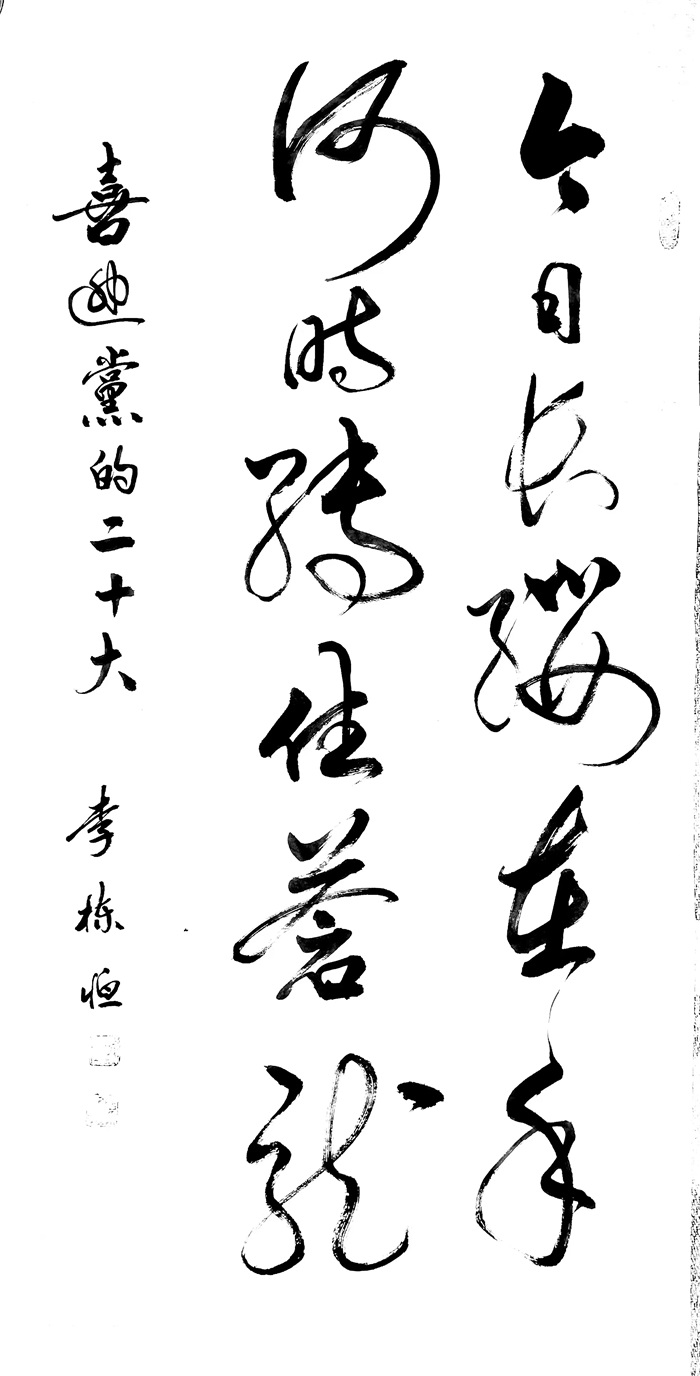 今日长缨在手
何时缚住苍龙
喜迎党的二十大
李栋恒